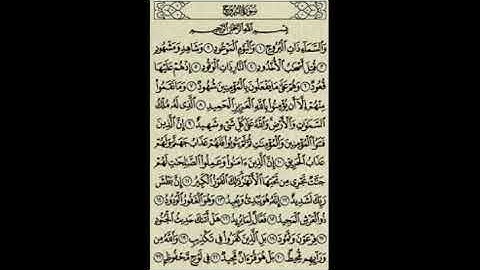 سورة البروج
بسم الله الرحمن الرحيم
والسماء ذات البروج ١ واليوم الموعود ٢ وشاهد ومشهود
٣ قتل أصحب الأخدود ٤ النار ذات الوقود ٥ إذ هم عليها
قعود ٦ وهم على ما يفعلون بالمؤمنين شهود ٧ وما نقموا
منهم إلا أن يؤمنوا بالله العزيز الحميد ٨ الذى له ملك
السموت والأرض والله على كل شىء شهيد ٩ إن الذين
فتنوا المؤمنين والمؤمنت ثم لم يتوبوا فلهم عذاب جهنم ولهم
عذاب الحريق ١٠ إن الذين ءامنوا وعملوا الصلحت لهم
جنت تجرى من تحتها الأنهر ذلك الفوز الكبير ١١ إن بطش
ربك لشديد ١٢ إنه هو يبدئ ويعيد ١٣ وهو الغفور الودود ١٤
ذو العرش المجيد ١٥ فعال لما يريد ١٦ هل أتىك حديث الجنود
١٧ فرعون وثمود ١٨ بل الذين كفروا فى تكذيب ١٩ والله من
ورائهم محيط ٢٠ بل هو قرءان مجيد ٢١ فى لوح محفوظ ٢٢